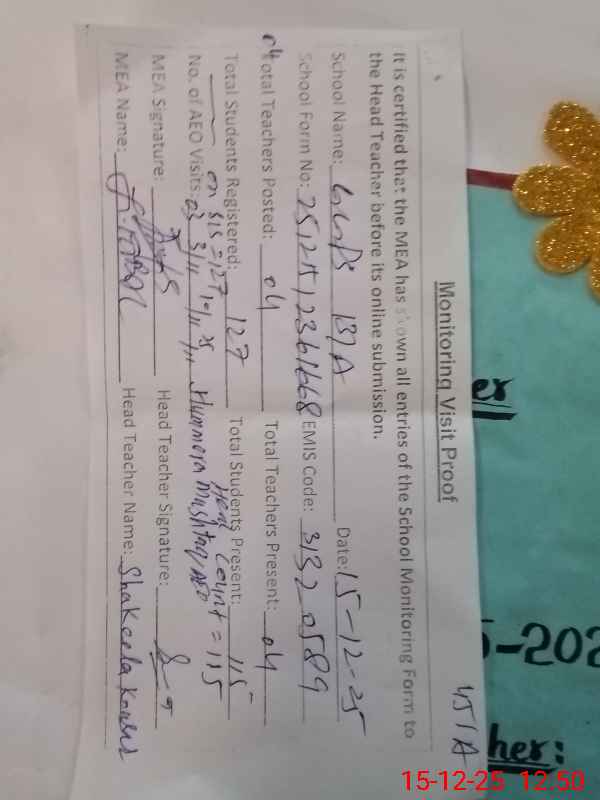 45/A
Monitoring Visit Proof
It is certified that the MEA has shown all entries of the School Monitoring Form to
the Head Teacher before its online submission.
School Name: GGPS 137A Date: 15-12-25
School Form No: 2512512361668 EMIS Code: 31320589
Total Teachers Posted: 04 Total Teachers Present: 04
Total Students Registered: 127 Total Students Present: 115
on SIS = 127 Head Count = 115
No. of AEO Visits: 03 Hummera Mushtaq AEO
MEA Signature: Head Teacher Signature:
MEA Name: Head Teacher Name: Shakeela Kousar
er
-202
her:
15-12-25 12.50